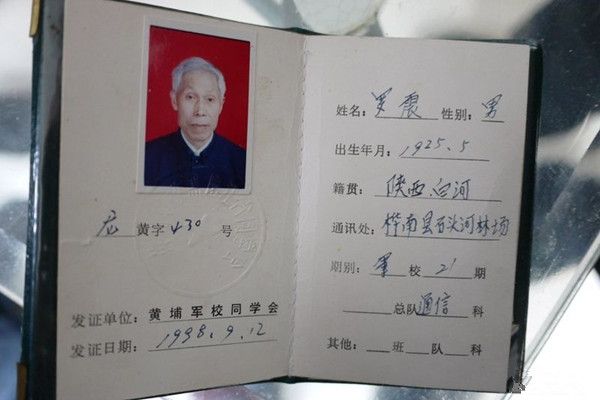 龙 黄字 430 号
发证单位: 黄埔军校同学会
发证日期: 1998.9.12
姓名: 罗震 性别: 男
出生年月: 1925.5
籍贯: 陕西白河
通讯处: 桦南县石头河林场
期别: 军校 21 期
总队 通信 科
其他: 班 队 科